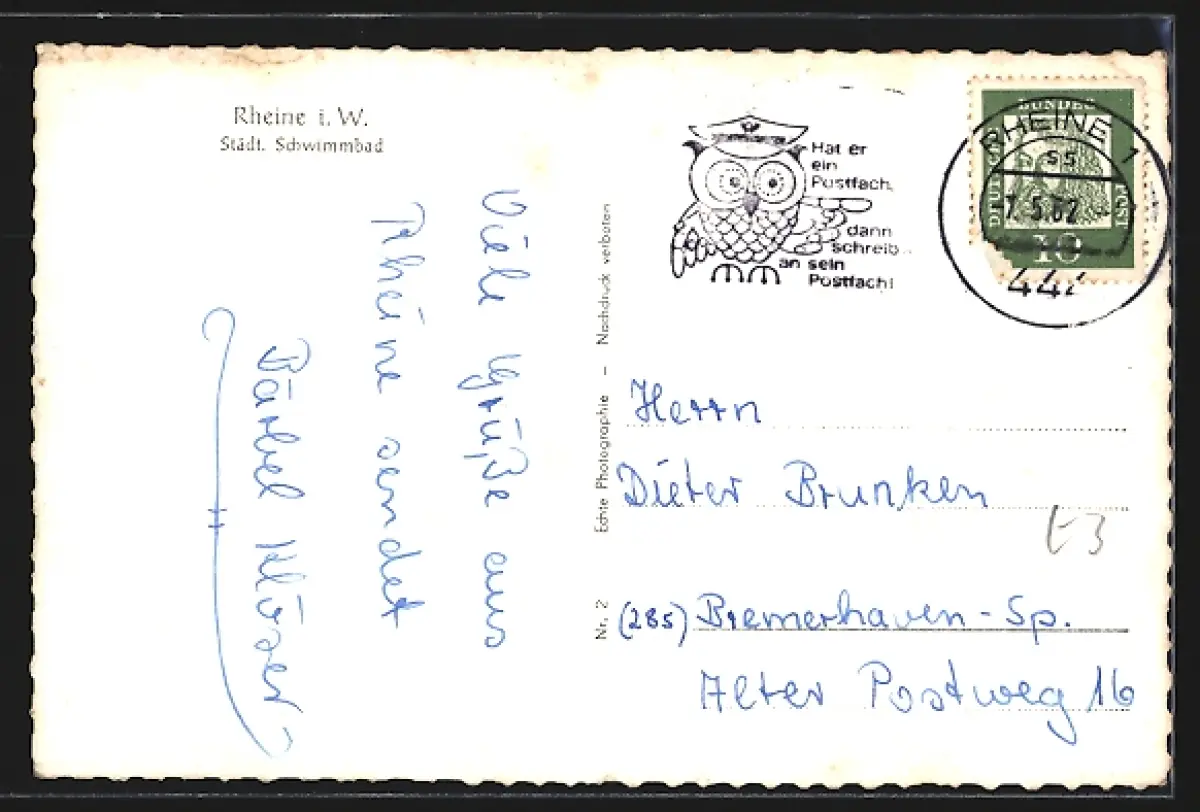 Rheine i. W.
Städt. Schwimmbad
Viele Grüße aus
Rheine sendet
Bärbel Klöser
Nr. 2 Echte Photographie – Nachdruck verboten
Hat er
ein
Postfach,
dann
schreib..
an sein
Postfach!
DEUTSCHE BUNDESPOST
10
RHEINE 1
ss
-7.5.62
444
Herrn
Dieter Brunken
(285) Bremerhaven-Sp.
Alter Postweg 16